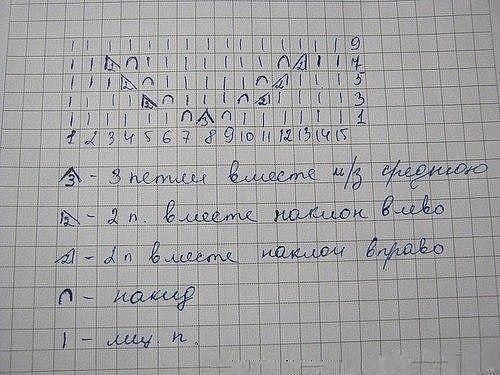 | | | | | | | | | | | | | | | 9
| | 2 ∩ | | | | | | | ∩ 2 | | 7
| | | 2 ∩ | | | | | ∩ 2 | | | 5
| | | | 2 ∩ | | | ∩ 2 | | | | 3
| | | | | | ∩ 3 ∩ | | | | | | 1
1 2 3 4 5 6 7 8 9 10 11 12 13 14 15
3 - 3 петли вместе н/з среднюю
2 - 2 п. вместе наклон влево
2 - 2 п вместе наклон вправо
∩ - накид
| - лиц. п.